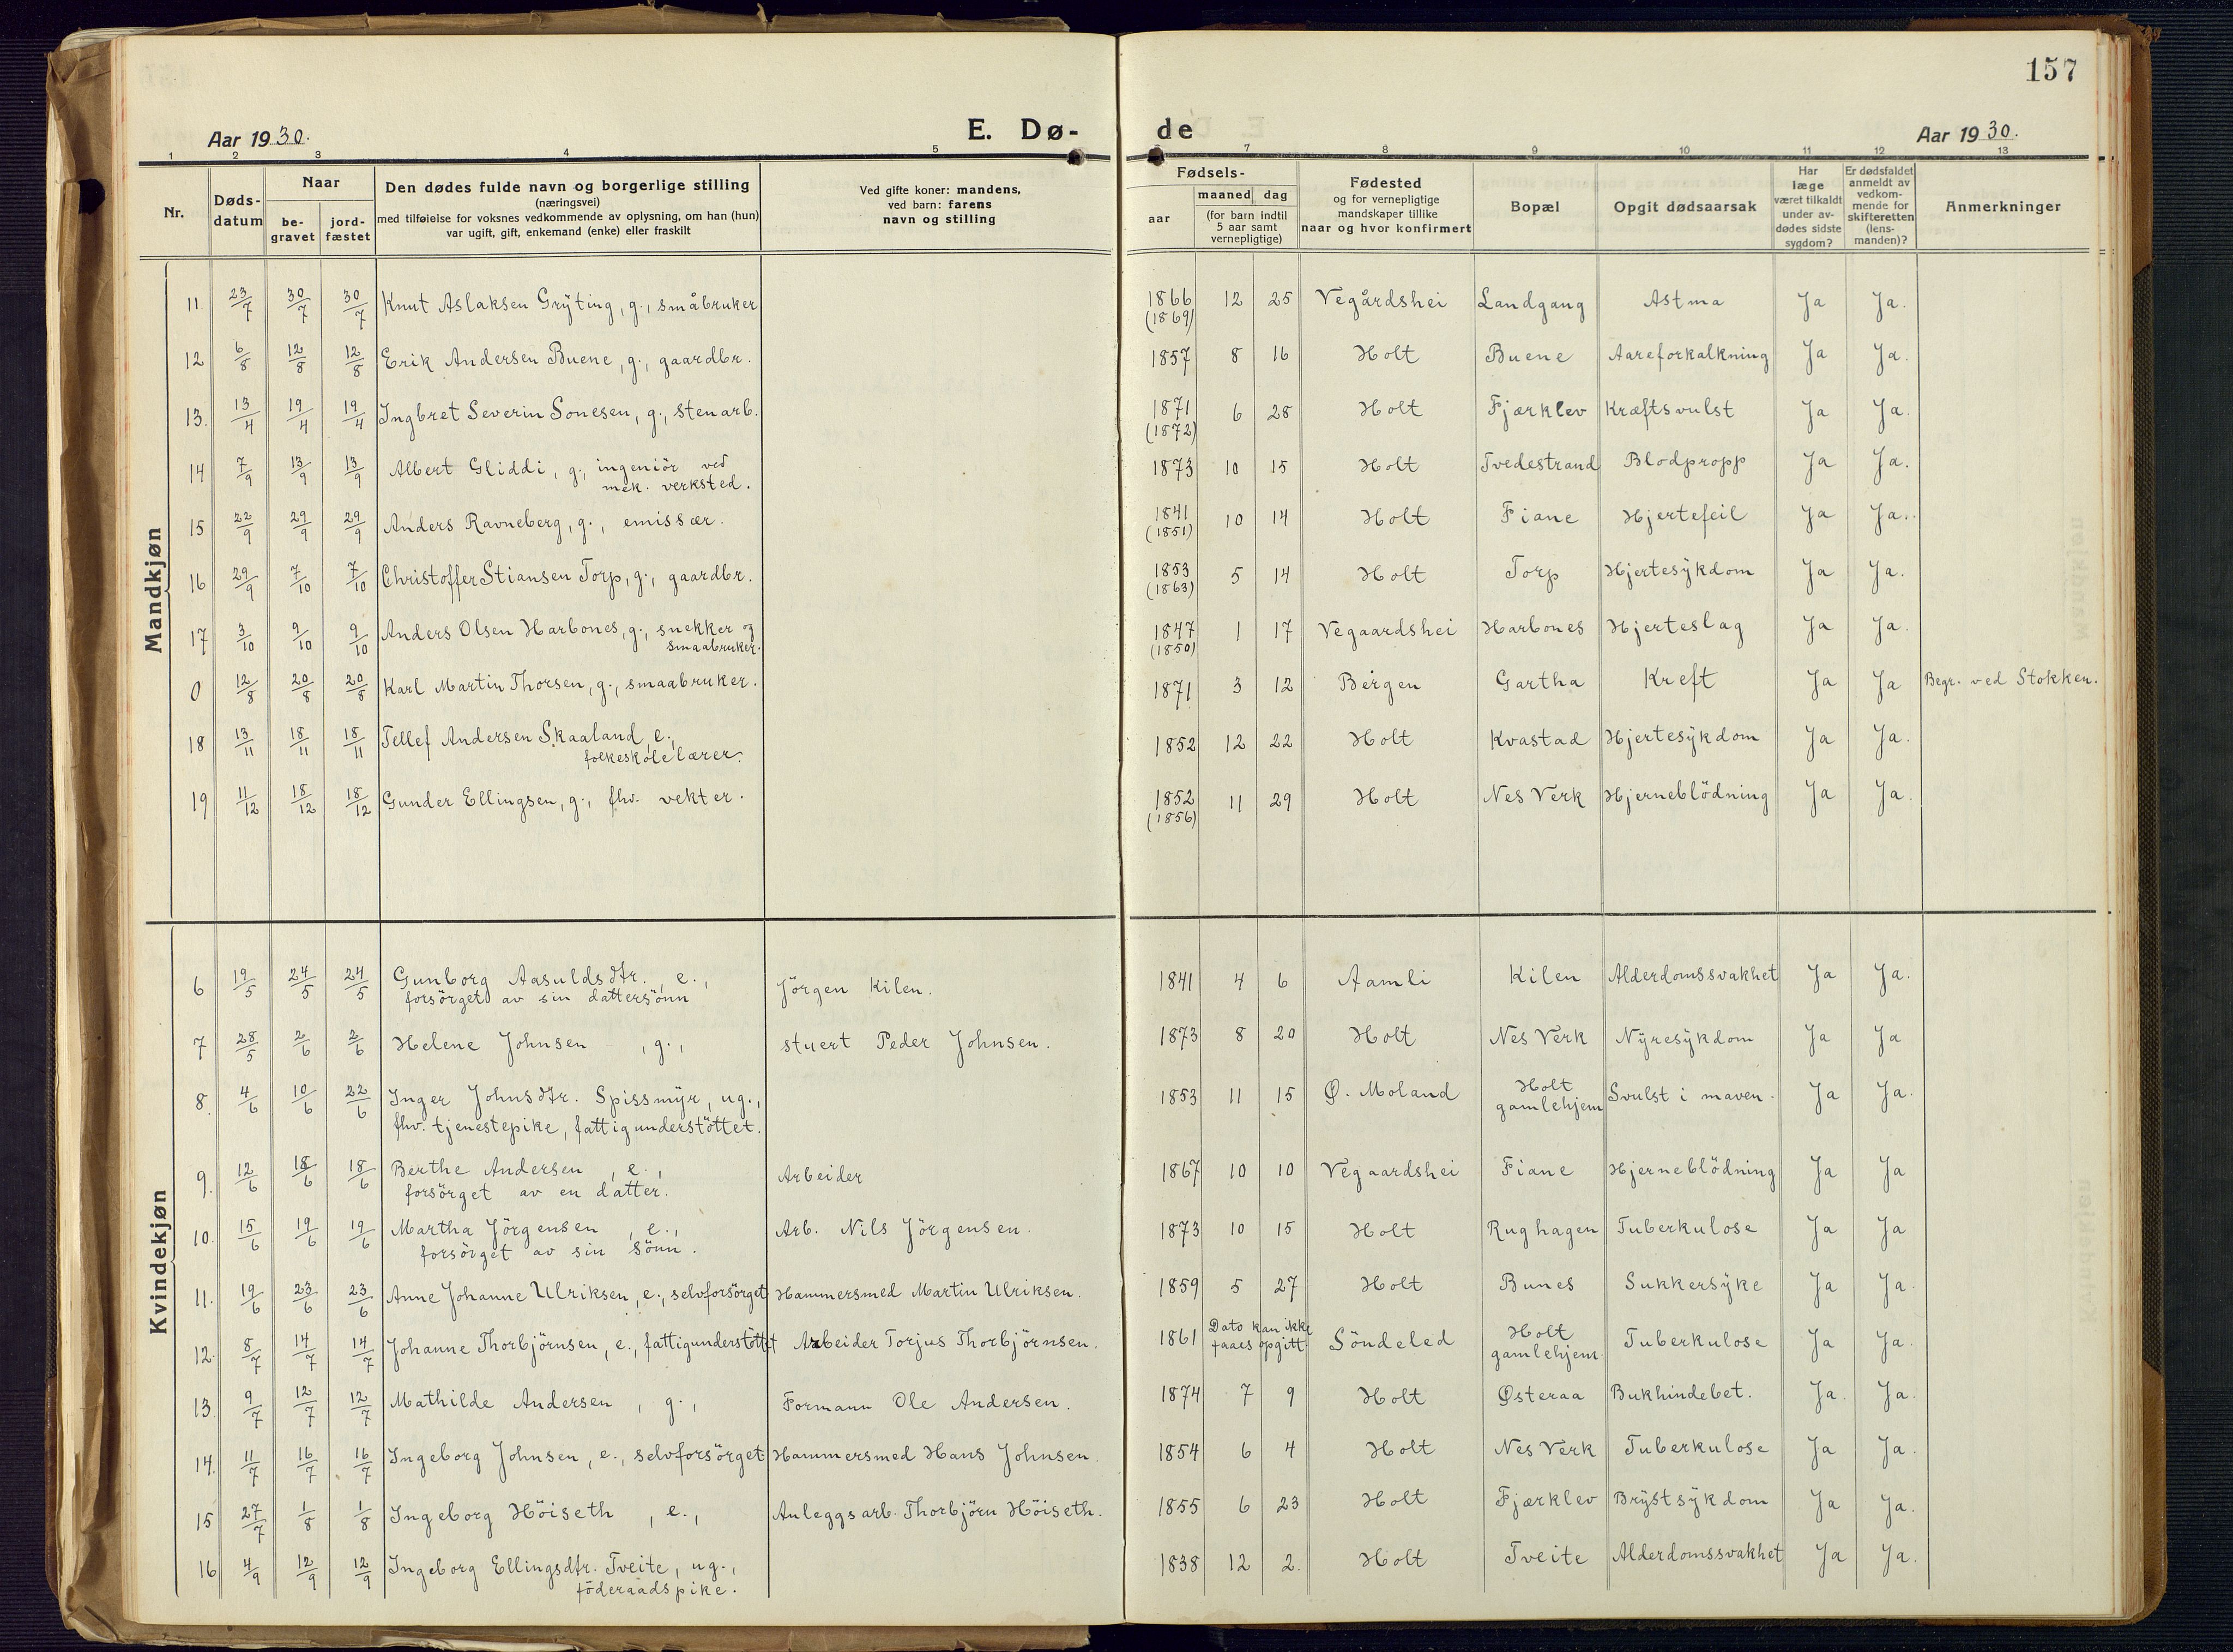 157
Aar 1930.
E. Dø-
de
Aar 1930.
1 2 3 4 5 7 8 9 10 11 12 13
Nr.
Døds-
datum
Naar
be-
gravet
jord-
fæstet
Den dødes fulde navn og borgerlige stilling
(næringsvei)
med tilføielse for voksnes vedkommende av oplysning, om han (hun)
var ugift, gift, enkemand (enke) eller fraskilt
Ved gifte koner: mandens,
ved barn: farens
navn og stilling
Fødsels-
aar
maaned dag
(for barn indtil
5 aar samt
vernepligtige)
Fødested
og for vernepligtige
mandskaper tillike
naar og hvor konfirmert
Bopæl
Opgit dødsaarsak
Har
læge
været tilkaldt
under av-
dødes sidste
sygdom?
Er dødsfaldet
anmeldt av
vedkom-
mende for
skifteretten
(lens-
manden)?
Anmerkninger
Mandkjøn
11. 23/7 30/7 30/7 Knut Aslaksen Grÿting, g., småbruker 1866 12 25 Vegårdshei Landgang Astma Ja Ja.
(1869)
12 6/8 12/8 12/8 Erik Andersen Buene, g., gaardbr. 1857 8 16 Holt Buene Aareforkalkning Ja Ja.
13. 13/4 19/4 19/4 Ingbret Severin Sonesen, g., stenarb. 1871 6 28 Holt Fjærklev Kræftsvulst Ja Ja.
(1872)
14 7/9 13/9 13/9 Albert Gliddi, g., ingeniör ved 1873 10 15 Holt Tvedestrand Blodpropp Ja Ja.
mek. verksted.
15 22/9 29/9 29/9 Anders Ravneberg, g., emissær. 1841 10 14 Holt Fiane Hjertefeil Ja Ja.
(1851)
16 29/9 7/10 7/10 Christoffer Stiansen Torp, g., gaardbr. 1853 5 14 Holt Torp Hjertesÿkdom Ja Ja.
(1863)
17 3/10 9/10 9/10 Anders Olsen Harbones, g., snekker og 1847 1 17 Vegaardshei Harbones Hjerteslag Ja Ja.
smaabruker. (1850)
0 12/8 20/8 20/8 Karl Martin Thorsen, g., smaabruker. 1871 3 12 Bergen Gartha Kreft Ja Ja Begr. ved Stokken.
18 13/11 18/11 18/11 Tellef Andersen Skaaland, e., 1852 12 22 Holt Kvastad Hjertesÿkdom Ja Ja.
folkeskolelærer.
19 11/12 18/12 18/12 Gunder Ellingsen, g., fhv. vekter. 1852 11 29 Holt Nes Verk Hjerneblödning Ja Ja.
(1856)
Kvindekjøn
6 19/5 24/5 24/5 Gunborg Aasuldsdtr., e., Jörgen Kilen. 1841 4 6 Aamli Kilen Alderdomssvakhet Ja Ja.
forsörget av sin dattersönn
7 28/5 2/6 2/6 Helene Johnsen, g., stuert Peder Johnsen. 1873 8 20 Holt Nes Verk Nÿresÿkdom Ja Ja
8. 4/6 10/6 22/6 Inger Johnsdtr. Spissmÿr, ug., 1853 11 15 Ø. Moland Holt gamlehjem Svulst i maven. Ja Ja.
fhv. tjenestepike, fattigunderstöttet.
9. 12/6 18/6 18/6 Berthe Andersen, e., Arbeider 1867 10 10 Vegaardshei Fiane Hjerneblödning Ja Ja
forsörget av en datter.
10. 15/6 19/6 19/6 Martha Jörgensen, e., Arb. Nils Jörgensen. 1873 10 15 Holt Rughagen Tuberkulose Ja Ja
forsörget av sin sönn.
11. 19/6 23/6 23/6 Anne Johanne Ulriksen, e., selvforsörget Hammersmed Martin Ulriksen. 1859 5 27 Holt Bunes Sukkersÿke Ja Ja.
12. 8/7 14/7 14/7 Johanne Thorbjörnsen, e., fattigunderstöttet Arbeider Torjus Thorbjörnsen. 1861 Dato kan ikke faaes opgitt. Söndeled Holt gamlehjem. Tuberkulose Ja Ja.
13. 9/7 12/7 12/7 Mathilde Andersen, g., Formann Ole Andersen. 1874 7 9 Holt Østeraa Bukhindebet. Ja. Ja.
14. 11/7 16/7 16/7 Ingeborg Johnsen, e., selvforsörget. Hammersmed Hans Johnsen. 1854 6 4 Holt Nes Verk Tuberkulose Ja Ja.
15 27/7 1/8 1/8 Ingeborg Höiseth, e., Anleggsarb. Thorbjörn Höiseth. 1855 6 23 Holt Fjærklev Brÿstsÿkdom Ja Ja.
16 4/9 12/9 12/9 Ingeborg Ellingsdtr. Tveite, ug., 1838 12 2. Holt Tveite Alderdomssvakhet Ja Ja.
föderaadspike.